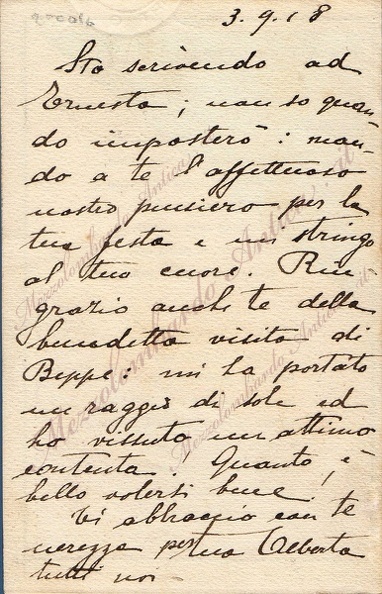 3.9.18
Sto scrivendo ad
Ernesta; non so quan-
do imposterò: man-
do a te l'affettuoso
nostro pensiero per la
tua festa e mi stringo
al tuo cuore. Rin-
grazio anche te della
benedetta visita di
Beppe: mi ha portato
un raggio di sole ed
ho vissuto un attimo
contenta! Quanto è
bello volersi bene!
Vi abbraccio con te
nerezza per tua Alberta
tutti noi-
Mezzolombardo Antica
Mezzolombardo Antica